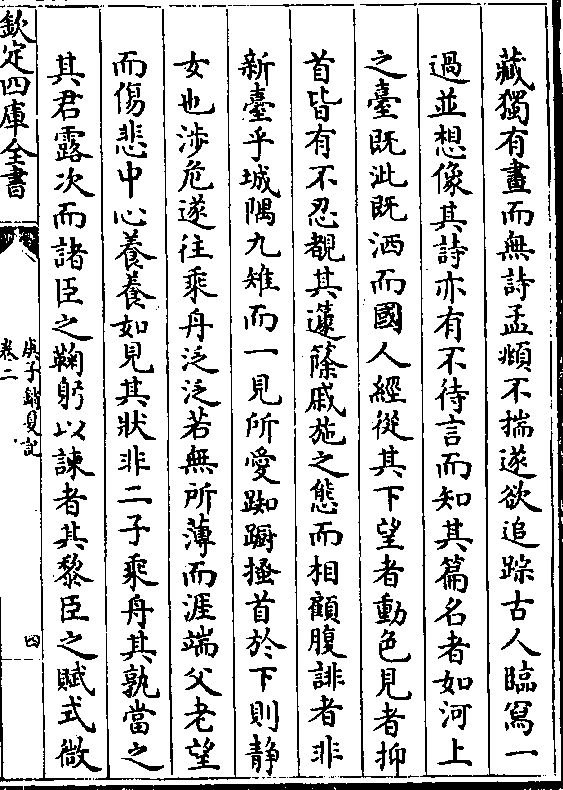 藏獨有畫而無詩孟頫不揣遂欲追踪古人臨寫一
過並想像其詩亦有不待言而知其篇名者如河上
之臺既泚既洒而國人經從其下望者動色見者抑
首皆有不忍覩其蘧篨戚施之態而相顧腹誹者非
新臺乎城隅九雉而一見所愛踟蹰搔首於下則静
女也涉危遂往乘舟泛泛若無所薄而涯端父老望
而傷悲中心養養如見其狀非二子乘舟其孰當之
其君露次而諸臣之鞠躬以諫者其黎臣之賦式微
欽定四庫全書
庚子銷夏記
卷二
四